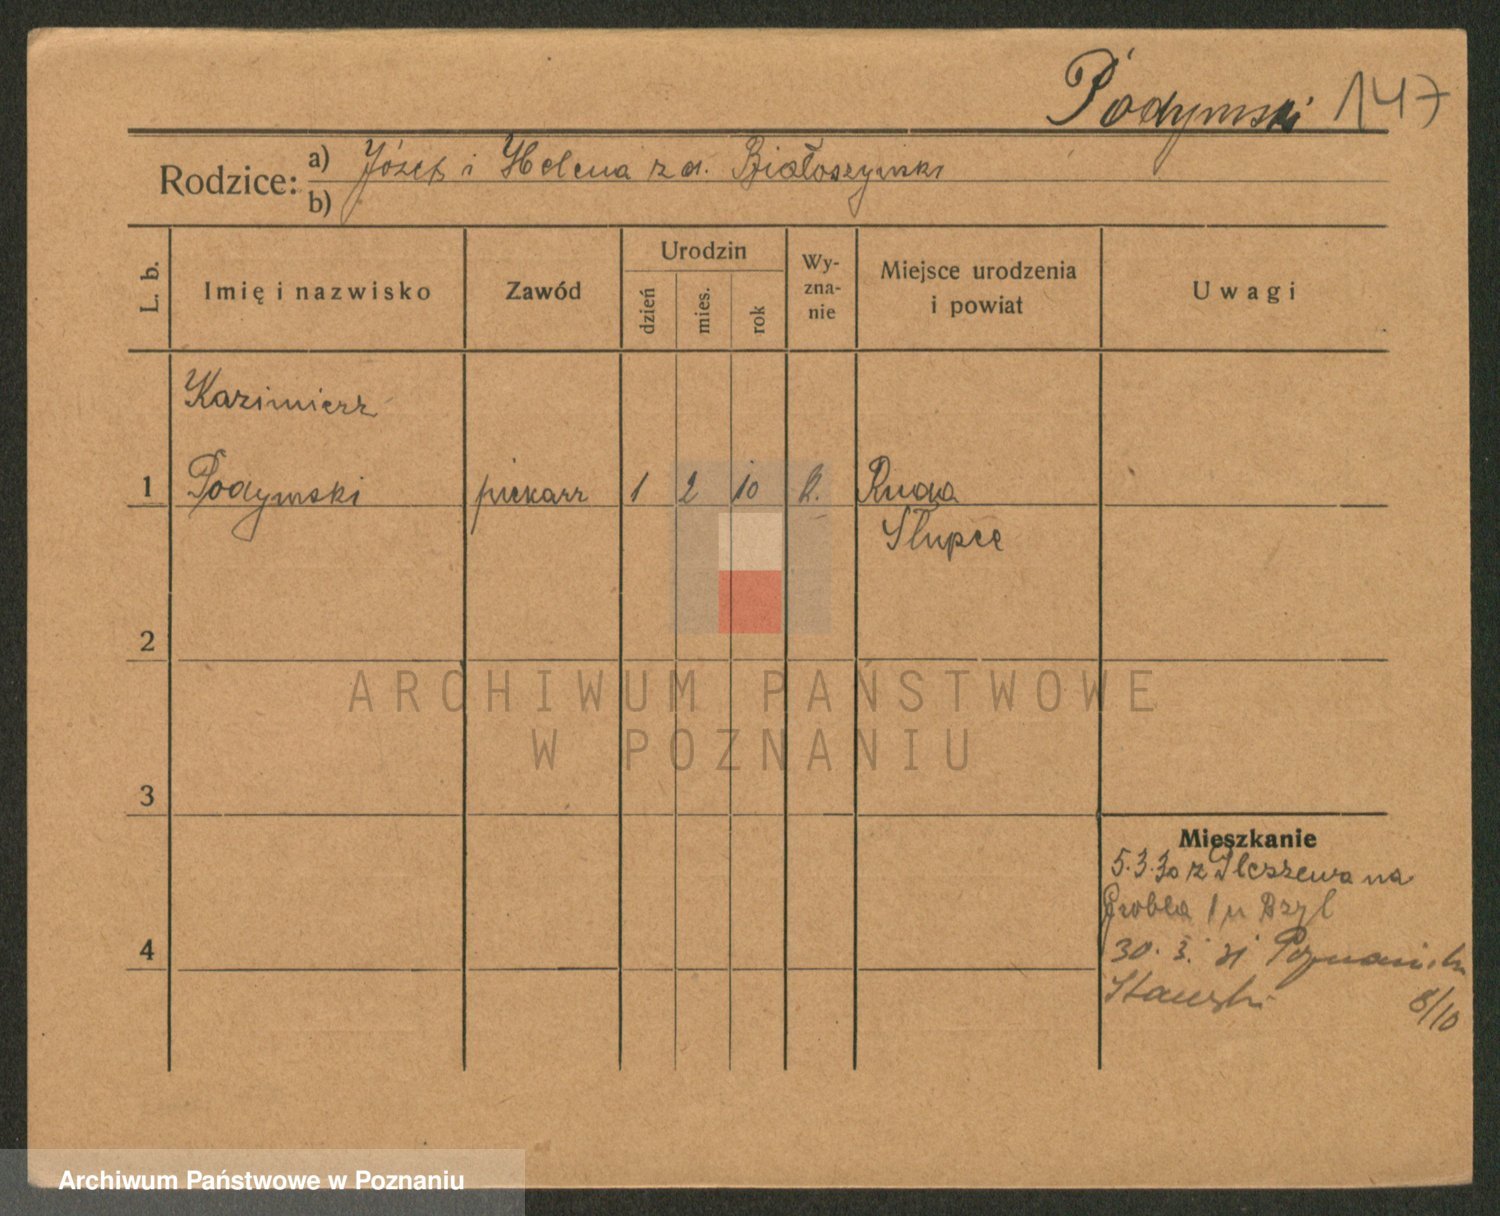 Podymski 147
Rodzice:
a) Józef i Helena z d. Białoszyński
b)
L. b.
Imię i nazwisko
Zawód
Urodzin
dzień
mies.
rok
Wy-
zna-
nie
Miejsce urodzenia
i powiat
Uwagi
Kazimierz
1 Podymski piekarz 1 2 10 R. Ruda
Słupce
2
3
4
ARCHIWUM PAŃSTWOWE
W POZNANIU
Mieszkanie
5.3.30 z Pleszewa na
Grobla 1 u Brzyl
30. 3. 31
8/10
Archiwum Państwowe w Poznaniu